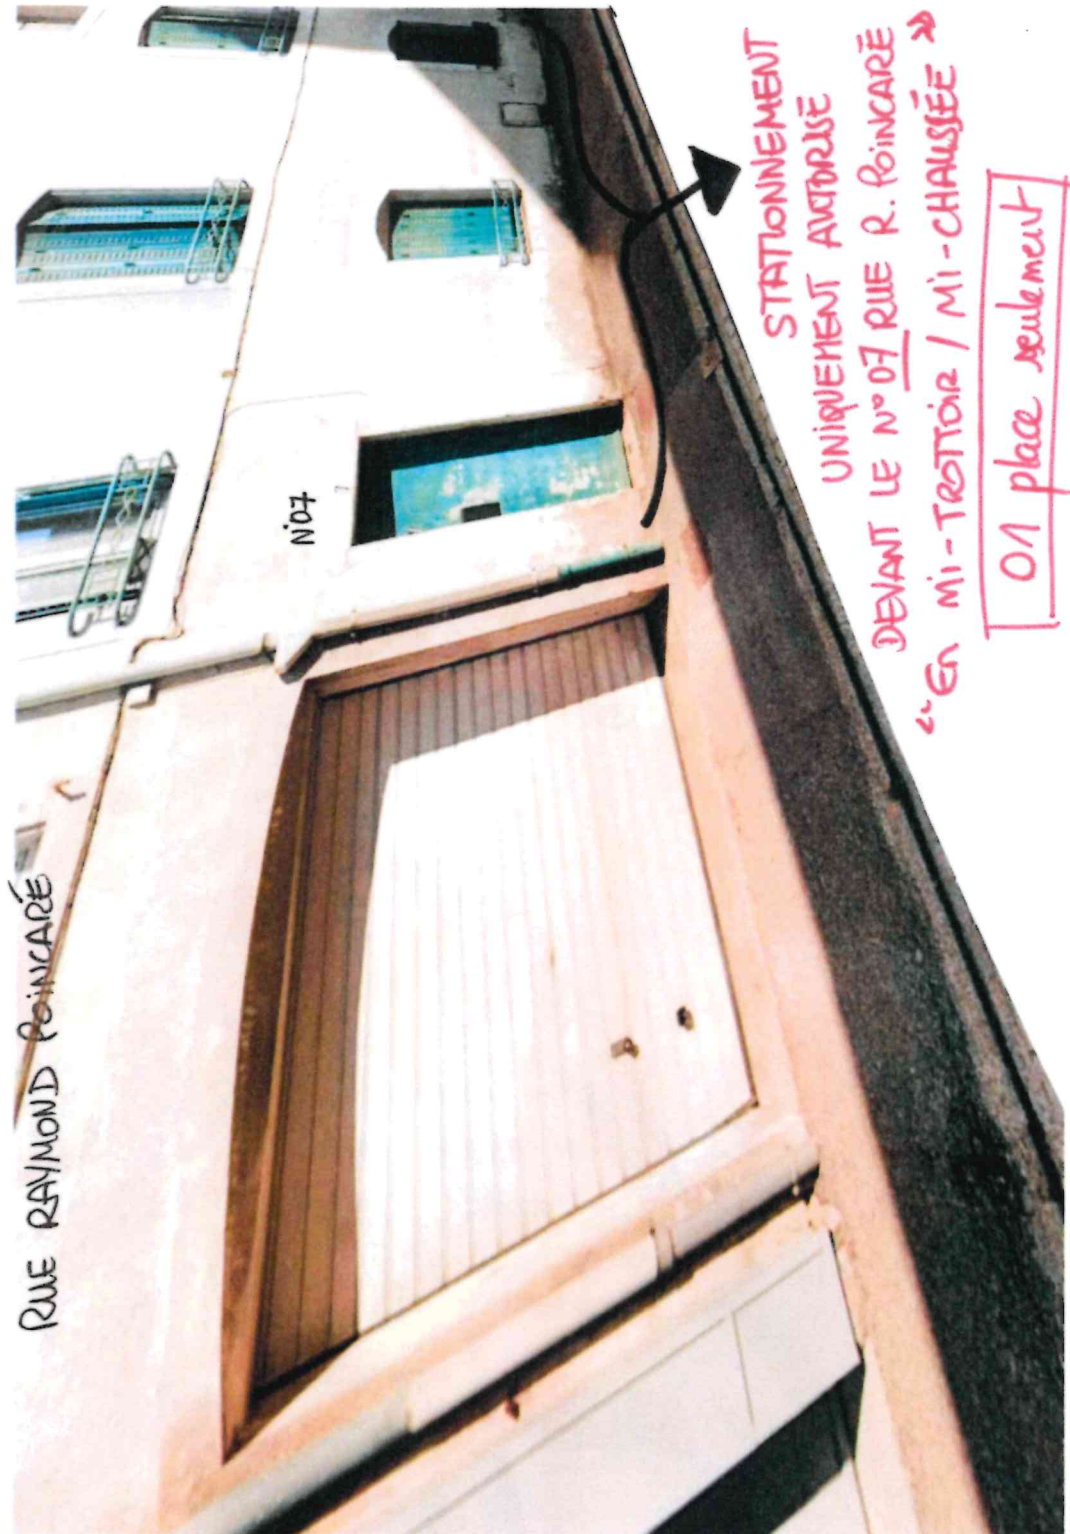 RUE RAYMOND POINCARÉ
N°07
STATIONNEMENT
UNIQUEMENT AUTORISÉ
DEVANT LE N°07 RUE R. POINCARÉ
“En Mi-TROTTOIR / Mi-CHAUSSÉE”
01 place seulement